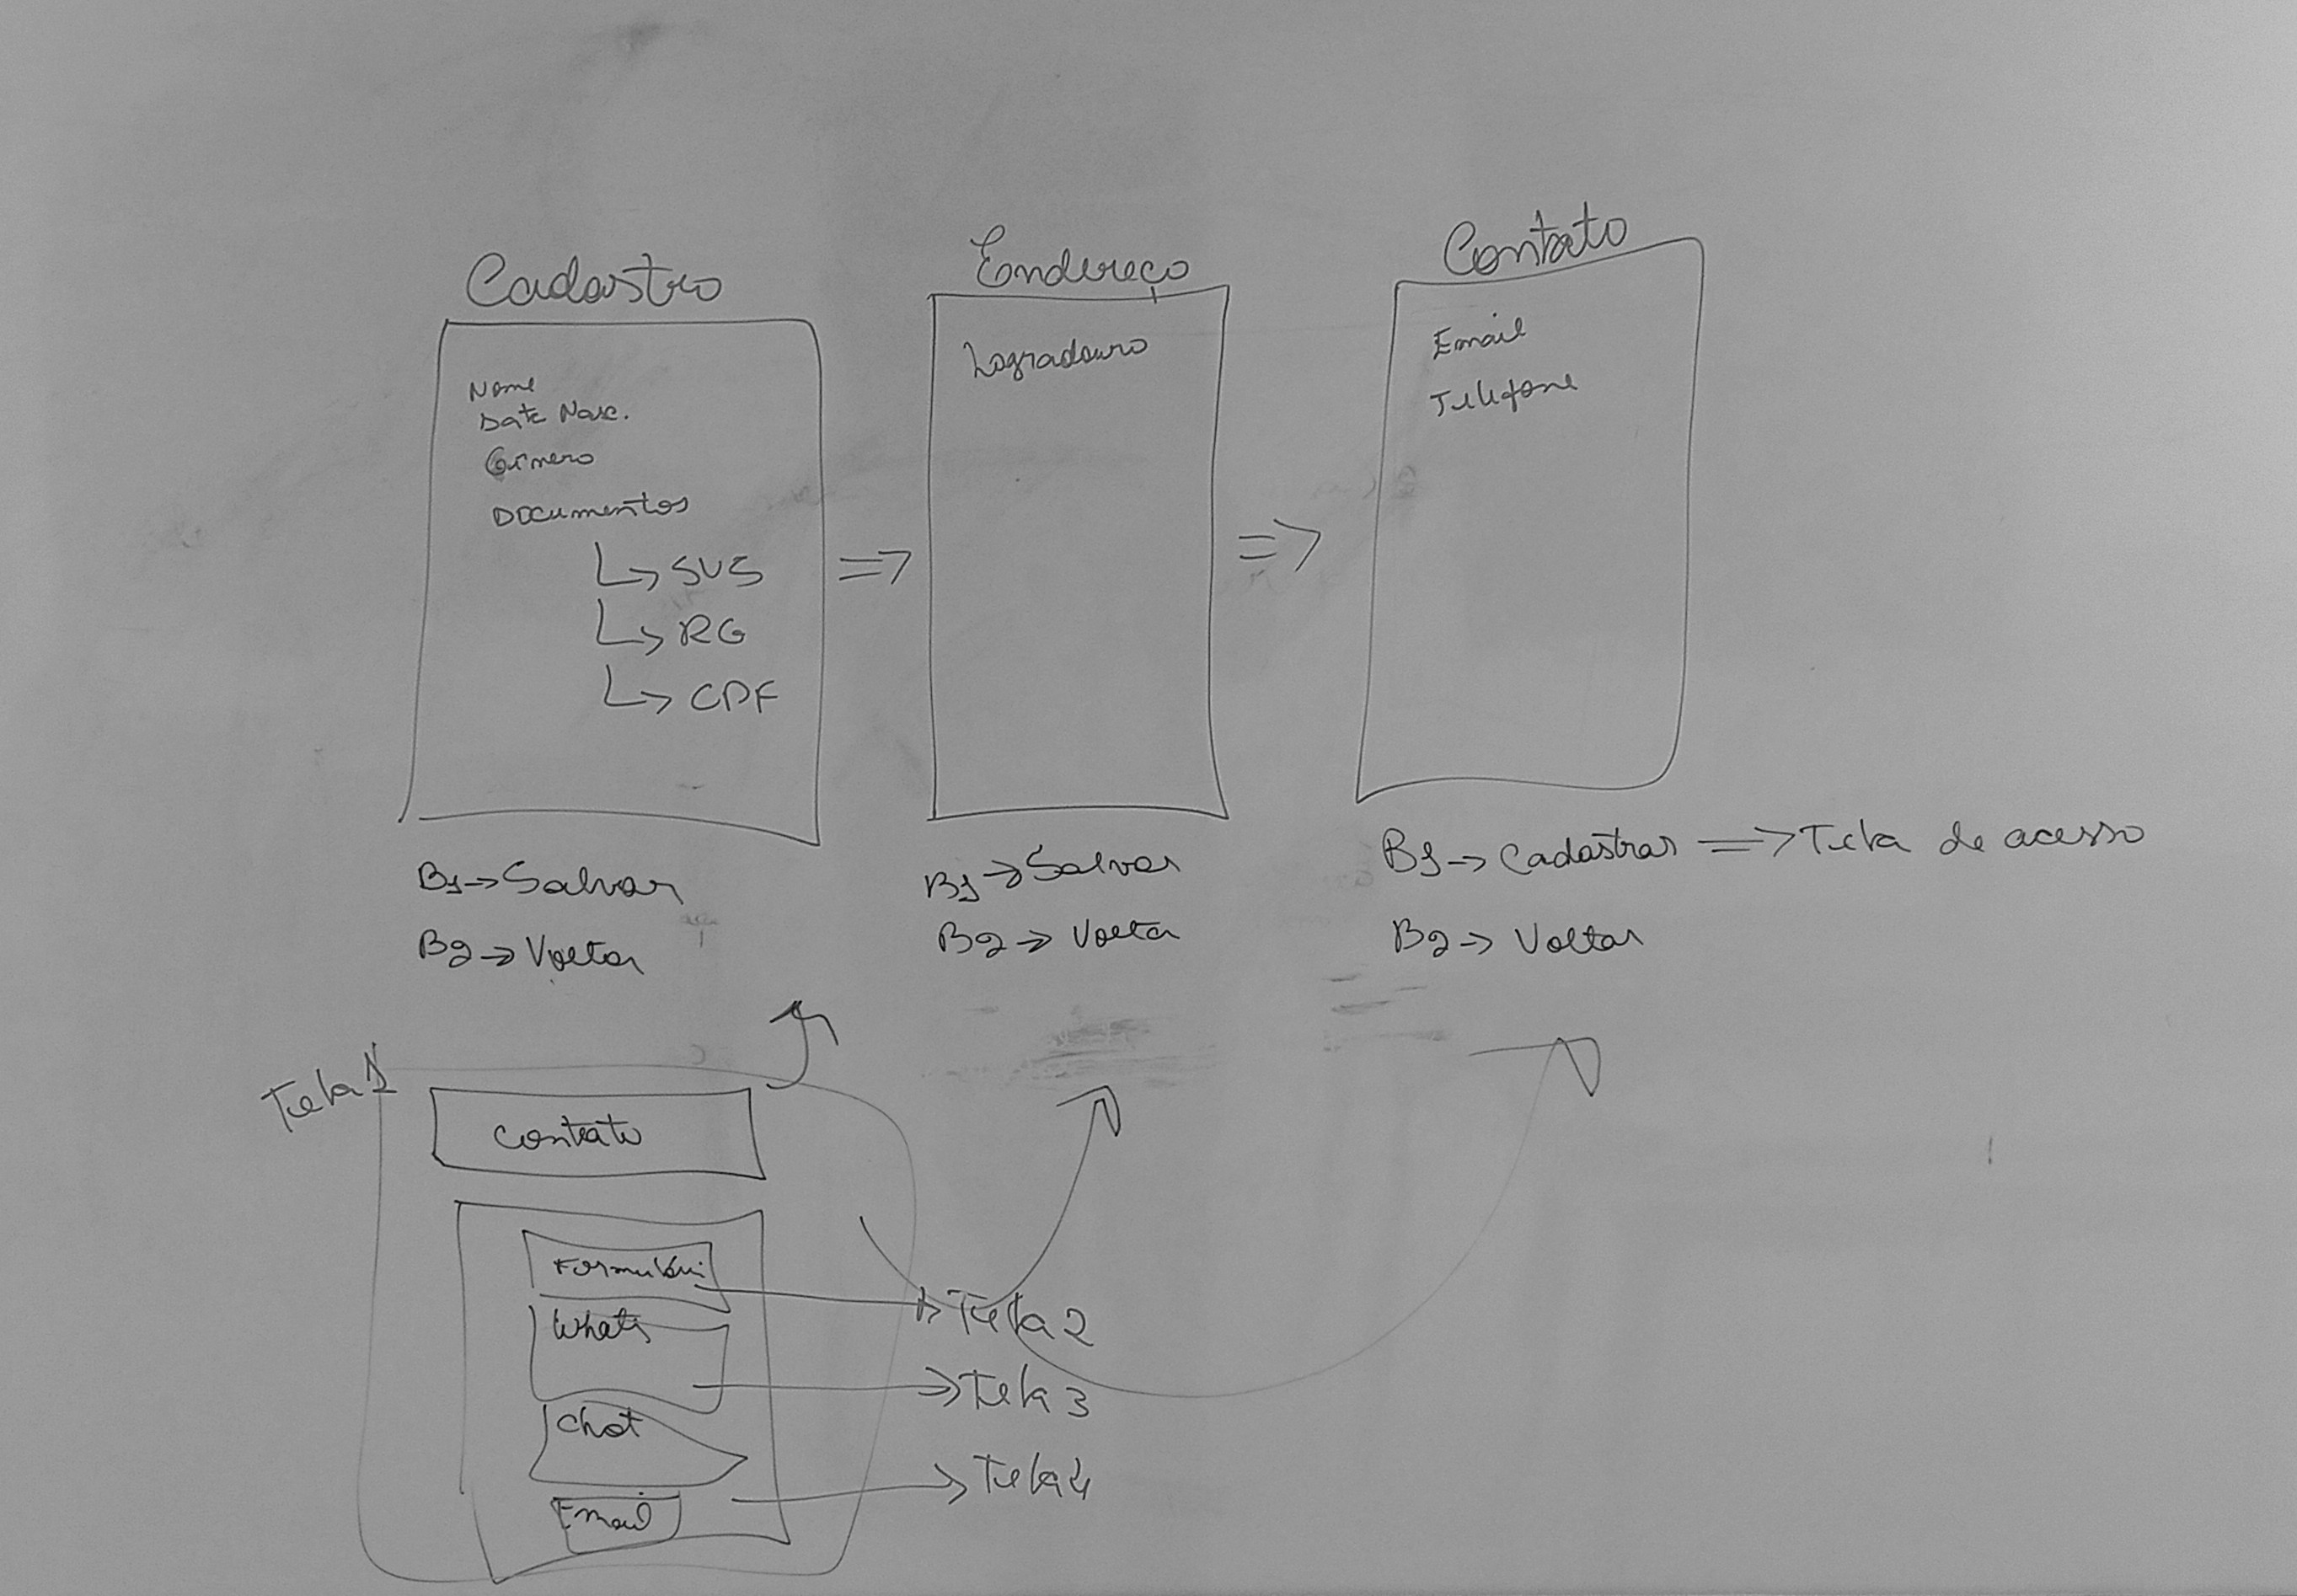 Cadastro
Nome
Data Nasc.
Gênero
Documentos
SUS
RG
CPF
B1 → Salvar
B2 → Voltar
Endereço
Logradouro
B1 → Salvar
B2 → Voltar
Contato
Email
Telefone
B1 → Cadastrar => Tela de acesso
B2 → Voltar
Tela 1
Contato
Formulári
Whats
Chat
Email
Tela 2
Tela 3
Tela 4